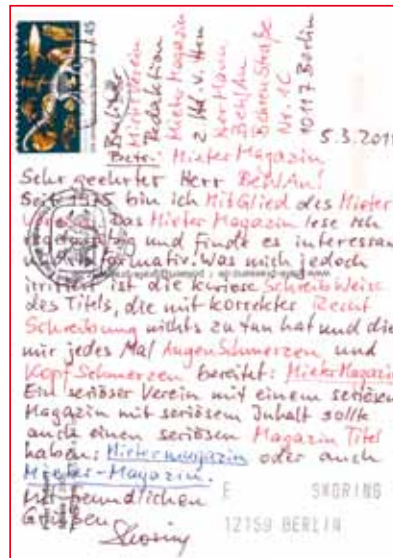 45
Berliner
Mieter Verein
Redaktion
Mieter Magazin
z. Hd. v. Hern
Hermann
BehlAn
Behren Straße
Nr. 1C
10117 Berlin
5.3.2011
Betr.: Mieter Magazin
Sehr geehrter Herr BehlAn!
Seit 1975 bin ich MitGlied des Mieter
Vereins. Das Mieter Magazin lese ich
regelmäßig und finde es interessan
und informativ. Was mich jedoch
irritiert ist die kuriose SchreibWeise
des Titels, die mit korrekter Recht
Schreibung nichts zu tun hat und die
mir jedes Mal AugenSchmerzen und
KopfSchmerzen bereitet: MieterMagazin
Ein seriöser Verein mit einem seriösen
Magazin mit seriösem Inhalt sollte
auch einen seriösen Magazin Titel
haben: Mietermagazin oder auch
Mieter-Magazin.
Mit freundlichen
Grüßen
Skoring
E SKORING
12159 BERLIN